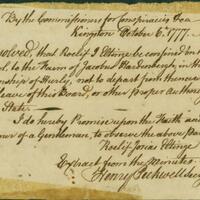 By the Commissioners for Conspiracies &ca
Kingston October 6. 1777.
solved, that Roelif J Eltinge be confined in
to the Farm of Jacobus Hardenbergh, in th
nship of Hurly, not to depart from thence
leave of this Board, or other proper Author
State
I do hereby Promise upon the Faith and
our of a Gentleman, to observe the above Pa
Roelif Josias Eltinge
Extract from the Minutes
Henry Peckwell Secy